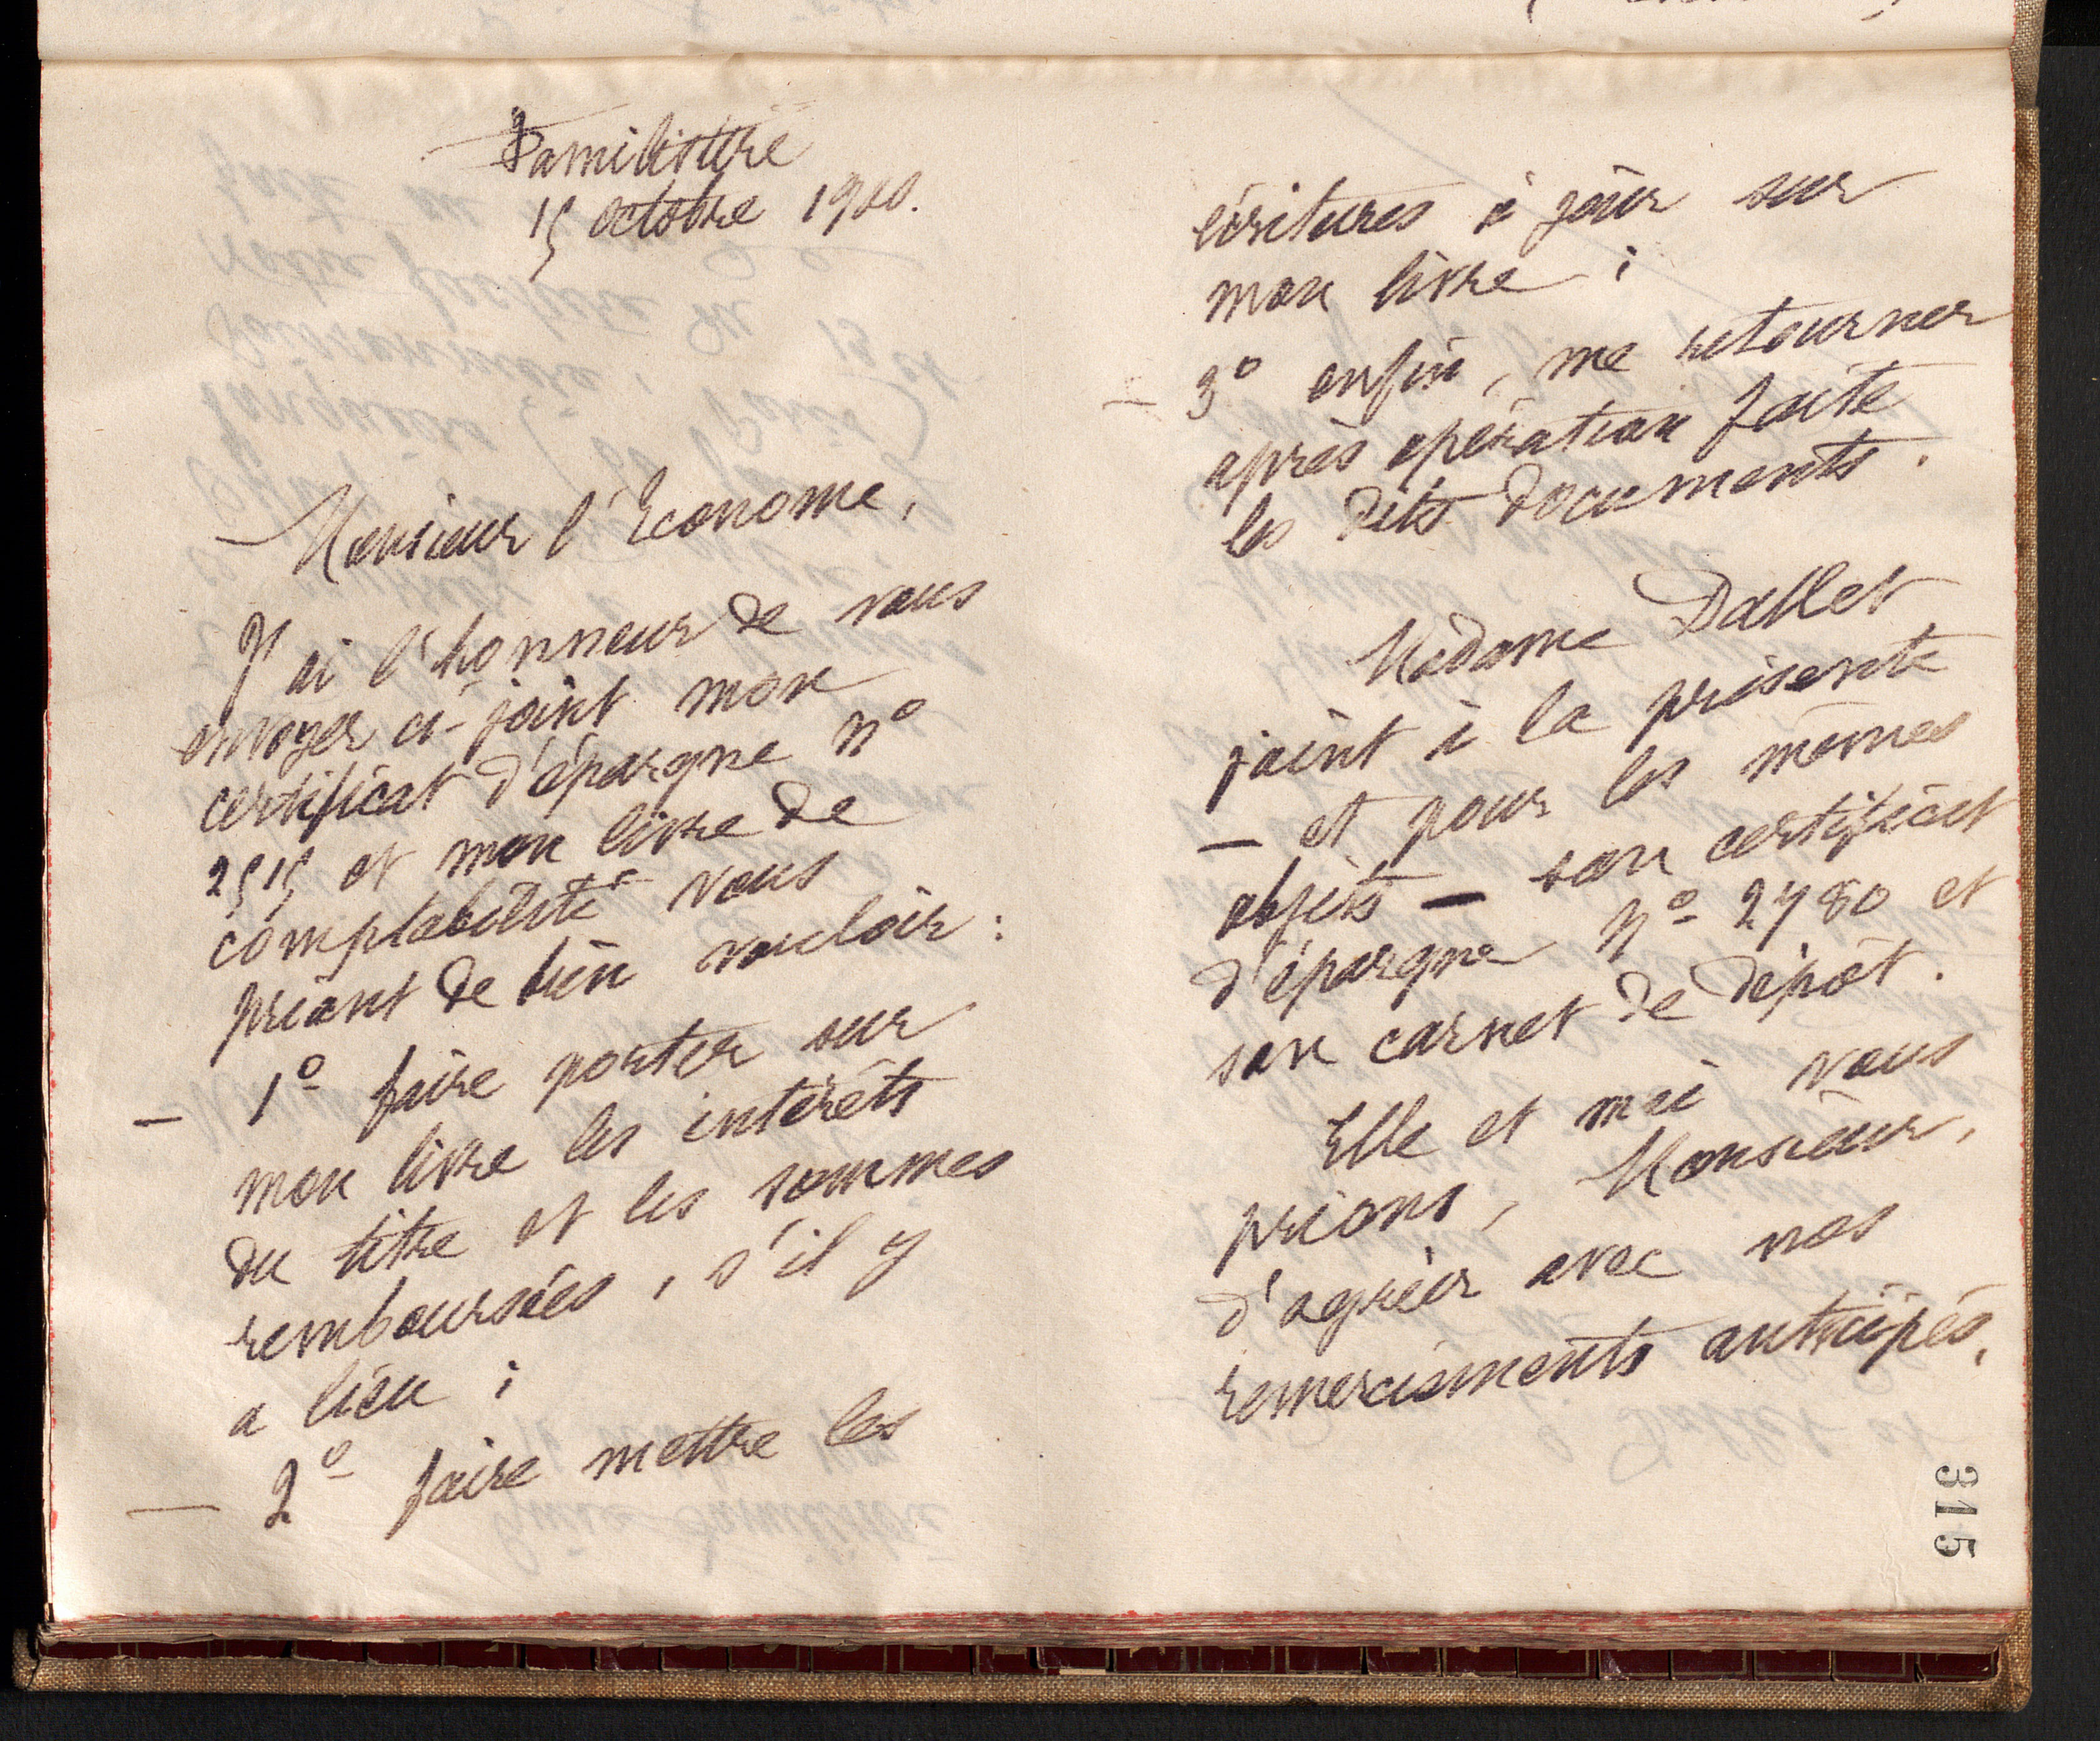 Familistère
15 octobre 1900.
Monsieur l'Econome,
J'ai l'honneur de vous
envoyer ci-joint mon
certificat d'épargne n°
2515 et mon livre de
comptabilité vous
priant de bien vouloir :
— 1° faire porter sur
mon livre les intérêts
du titre et les sommes
remboursées, s'il y
a lieu ;
— 2° faire mettre les
écritures à jour sur
mon livre ;
— 3° enfin, me retourner
après opération faite
les dits documents.
Madame Dallet
joint à la présente
— et pour les mêmes
objets — son certificat
d'épargne n° 2780 et
son carnet de dépôt.
Elle et moi vous
prions, Monsieur,
d'agréer avec nos
remerciments anticipés,
315